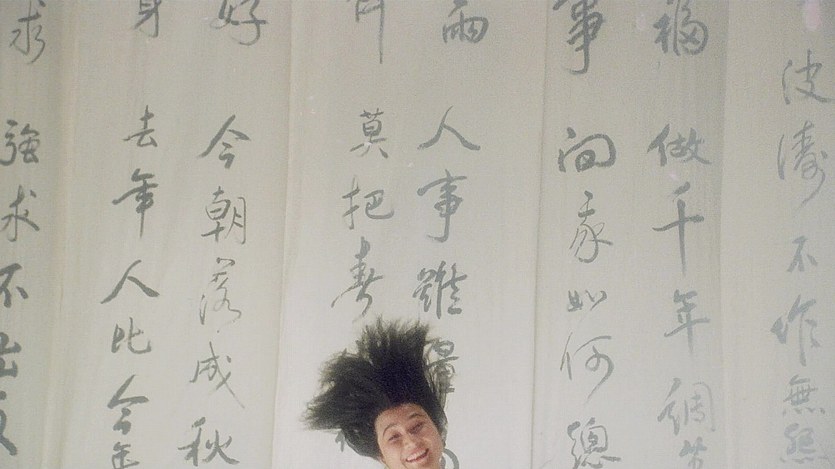 波濤不作無
福 做千年調
事 問我如何總
雨 人事雖量
莫把春
好 今朝落成秋
身 去年人比今年
求 強求不出